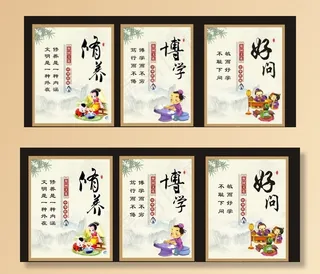 修养
修养是一种内涵
文明是一种外在
博学
博学而不穷
笃行而不倦
好问
敏而好学
不耻下问
修养
修养是一种内涵
文明是一种外在
博学
博学而不穷
笃行而不倦
好问
敏而好学
不耻下问